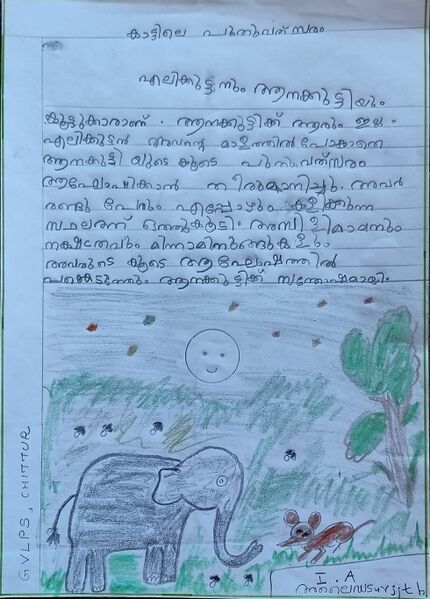 കാട്ടിലെ പുതുവത്സരം
എലിക്കുട്ടനും ആനക്കുട്ടിയും
കൂട്ടുകാരാണ്. ആനക്കുട്ടിക്ക് ആരും ഇല്ല.
എലിക്കുട്ടൻ അവന്റെ മാളത്തിൽ പോകാതെ
ആനകുട്ടി യുടെ കൂടെ പുതുവത്സരം
ആഘോഷിക്കാൻ തീരുമാനിച്ചു. അവർ
രണ്ടു പേരും എപ്പോഴും കളിക്കുന്ന
സ്ഥലത്ത് ഒത്തുകൂടി. അമ്പിളിമാമനും
നക്ഷത്രവും മിന്നാമിനുങ്ങുകളും
അവരുടെ കൂടെ ആഘോഷത്തിൽ
പങ്കെടുത്തും ആനക്കുട്ടിക്ക് സന്തോഷമായി.
GVLPS, CHITTUR
I.A